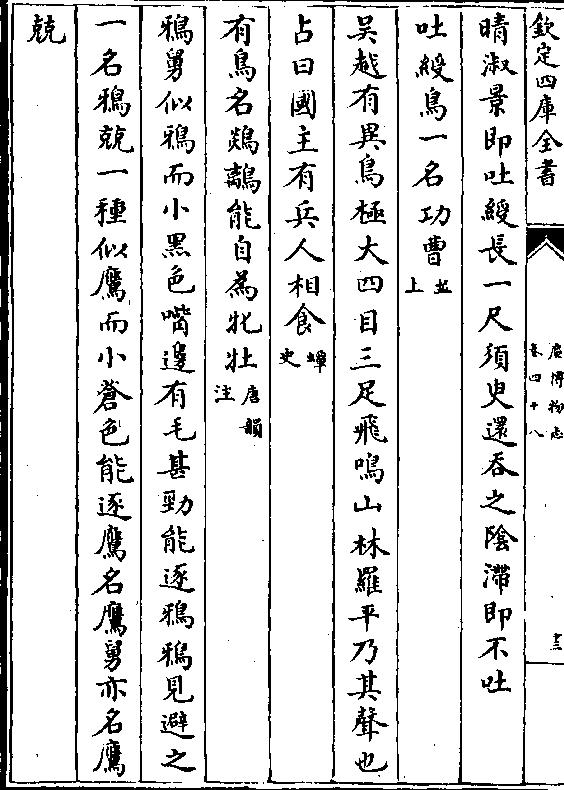 欽定四庫全書
廣博物志
卷四十八
十三
晴淑景即吐綬長一尺須臾還吞之陰滯即不吐
吐綬鳥一名功曹並上
吳越有異鳥極大四目三足飛鳴山林羅平乃其聲也
占曰國主有兵人相食蟑史
有鳥名鷄鷸能自為牝牡唐韻注
鴉舅似鴉而小黑色嘴邊有毛甚勁能逐鴉鴉見避之
一名鴉兢一種似鷹而小蒼色能逐鷹名鷹舅亦名鷹
兢